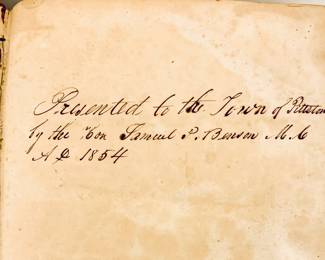 Presented to the Town of
by the Hon Samuel P. Benson M.C
A D 1854